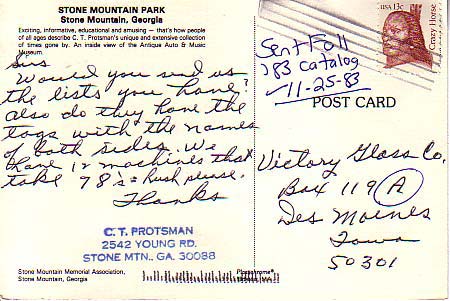 STONE MOUNTAIN PARK
Stone Mountain, Georgia
Exciting, informative, educational and amusing — that's how people
of all ages describe C. T. Protsman's unique and extensive collection
of times gone by. An inside view of the Antique Auto & Music
Museum.
Sirs
Would you send us
the lists you have?
also do they have the
tags with the names
of both sides. We
have 12 machines that
take 78's = Rush please.
Thanks
C. T. PROTSMAN
2542 YOUNG RD.
STONE MTN., GA. 30088
Stone Mountain Memorial Association,
Stone Mountain, Georgia
Plastichrome®
USA 13c
Crazy Horse
Sent Fall
'83 Catalog
11-25-83
POST CARD
Victory Glass Co.
Box 119 A
Des Moines
Iowa
50301